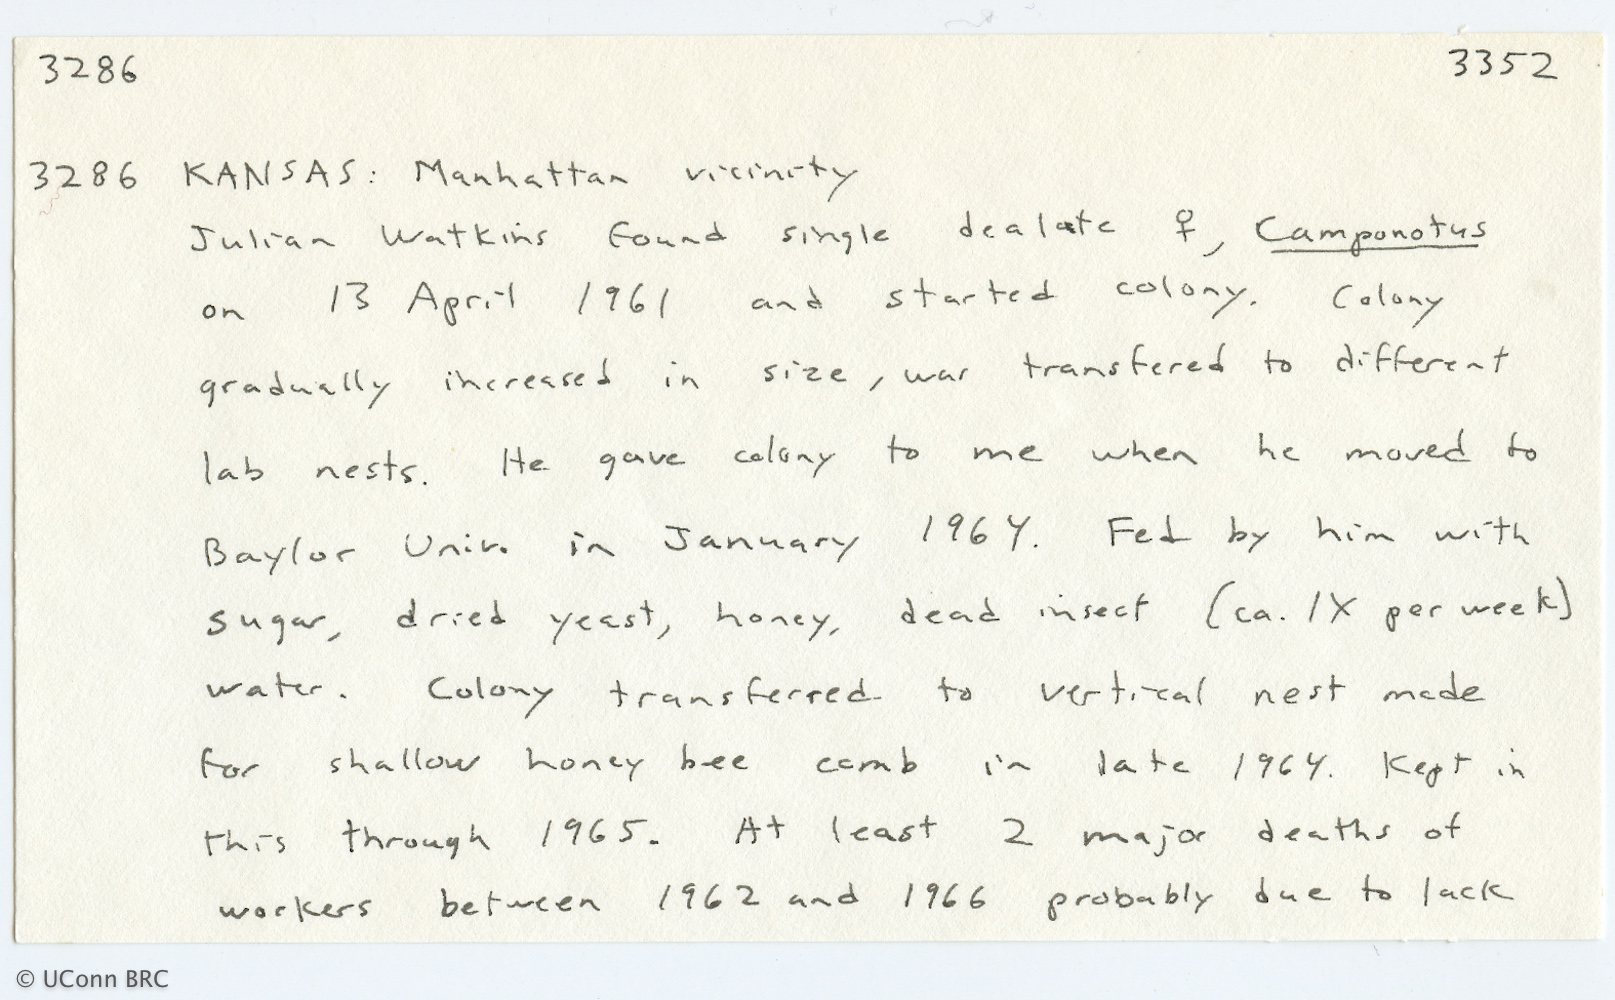 3286 3352
3286 KANSAS: Manhattan vicinity
Julian Watkins found single dealate ♀, Camponotus
on 13 April 1961 and started colony. Colony
gradually increased in size, was transfered to different
lab nests. He gave colony to me when he moved to
Baylor Univ. in January 1964. Fed by him with
sugar, dried yeast, honey, dead insect (ca. 1X per week)
water. Colony transferred to vertical nest made
for shallow honey bee comb in late 1964. Kept in
this through 1965. At least 2 major deaths of
workers between 1962 and 1966 probably due to lack
© UConn BRC